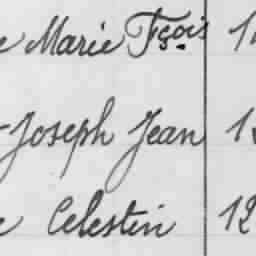 e Marie Fçois 1
-Joseph Jean 1
e Celestin 12